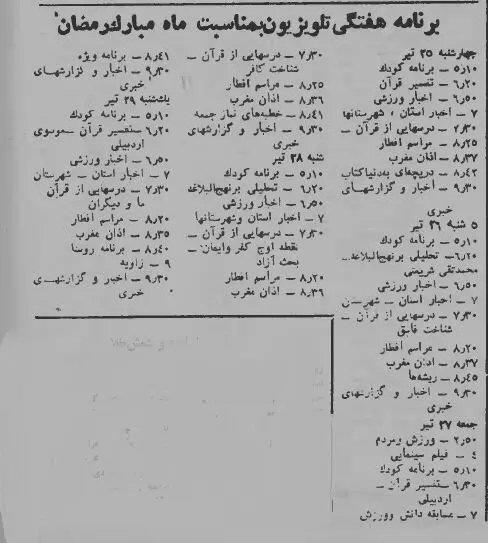 برنامه هفتگی تلویزیون بمناسبت ماه مبارک رمضان
چهارشنبه ۲۵ تیر
۵٫۱۰ – برنامه کودک
۶٫۲۰ – تفسیر قرآن
۶٫۵۰ – اخبار ورزشی
۷ – اخبار استان ، شهرستانها
۷٫۳۰ – درسهایی از قرآن –
۸٫۲۵ – مراسم افطار
۸٫۳۷ – اذان مغرب
۸٫۴۲ – دریچه‌ای به‌دنیاکتاب
۹٫۳۰ – اخبار و گزارشهای
خبری
۵ شنبه ۲۶ تیر
۵٫۱۰ – برنامه کودک
۶٫۲۰ – تحلیلی برنهج‌البلاغه–
محمدتقی شریعتی
۶٫۵۰ – اخبار ورزشی
۷ – اخبار استان – شهرستان
۷٫۳۰ – درسهایی از قرآن –
شناخت
۸٫۲۰ – مراسم افطار
۸٫۳۷ – اذان مغرب
۸٫۴۵ – ریشه‌ها
۹٫۳۰ – اخبار و گزارشهای
خبری
جمعه ۲۷ تیر
۲٫۵۰ – ورزش ومردم
۴ – فیلم سینمایی
۵٫۱۰ – برنامه کودک
۶٫۳۰ – تفسیر قرآن –
اردبیلی
۷ – مسابقه دانش وورزش
۷٫۳۰ – درسهایی از قرآن –
شناخت کافر
۸٫۲۵ – مراسم افطار
۸٫۳۶ – اذان مغرب
۸٫۴۱ – خطبه‌های نماز جمعه
۹٫۳۰ – اخبار و گزارشهای
خبری
شنبه ۲۸ تیر
۵٫۱۰ – برنامه کودک
۶٫۲۰ – تحلیلی برنهج‌البلاغه
۶٫۵۰ – اخبار ورزشی
۷ – اخبار استان وشهرستانها
۷٫۳۰ – درسهایی از قرآن –
نقطه اوج کفر وایمان –
بحث آزاد
۸٫۲۰ – مراسم افطار
۸٫۳۶ – اذان مغرب
۸٫۴۱ – برنامه ویژه
۹٫۳۰ – اخبار و گزارشهای
خبری
یکشنبه ۲۹ تیر
۵٫۱۰ – برنامه کودک
۶٫۲۰ – تفسیر قرآن – موسوی
اردبیلی
۶٫۵۰ – اخبار ورزشی
۷ – اخبار استان – شهرستان
۷٫۳۰ – درسهایی از قرآن
ما و دیگران
۸٫۲۰ – مراسم افطار
۸٫۳۵ – اذان مغرب
۸٫۴۰ – برنامه روستا
۹ – زاویه
۹٫۳۰ – اخبار و گزارشهای
خبری